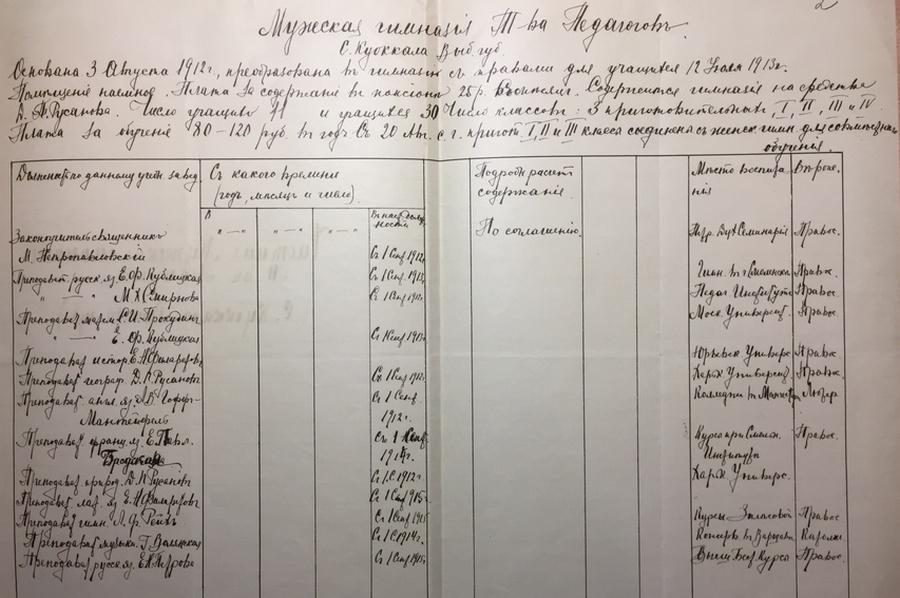 2
Мужская гимназія Т-ва Педагоговъ.
С. Куоккала Выб. губ.
Основана 3 Августа 1912 г., преобразована въ гимназію съ правами для учащихся 12 Іюля 1913 г.
Помѣщеніе наемное. Плата за содержаніе въ пансіонѣ 25 р. Содержится гимназія на средства
Д. К. Русанова. Число учащихъ 11 и учащихся 30 Число классовъ: 3 приготовительныхъ I, II, III и IV
Плата за обученіе 80-120 руб. въ годъ Съ 20 Авг. с. г. пригот. I, II и III классы соединены съ женск. гимн. для совмѣстнаго
обученія.
Должность по данному учебн. завед. Съ какого времени Подробн. расчет Мѣсто воспита- Вѣроисп.
(годъ, мѣсяцъ и число). содержанія. нія
В " — " " — " Въ наст. должности
По соглашенію.
Законоучитель священникъ Дух. Семинарія Правос.
М. Петропавловскій Съ 1 Сен. 1912 г.
Преподават. русск. яз. Е. Ф. Кублицкая Съ 1 Сен. Гимн. въ Смоленскѣ Правос.
" — " М. Х. Смирнова Съ 1 Сен. Педаг. Институтъ Правос.
Преподават. матем. С. И. Прокудинъ Моск. Университ. Правос.
" — " Е. Ф. Кублицкая Съ 1 Сен.
Преподават. истор. Юрьевск. Универс. Правос.
Преподават. географ. Д. К. Русановъ Съ 1 Сен. 1912 г. Харьк. Университ. Правос.
Преподават. англ. яз. Съ 1 Сент. Колледжъ Лютер.
1912 г.
Преподават. франц. яз. Съ 1 Сент. Курсы при Смольн. Правос.
Институтѣ
Преподават. природ. Д. К. Русановъ Съ 1 С. 1912 г. Харьк. Универс.
Преподават. лат. яз. Съ 1 Сен. 1915 г.
Преподават. гимн. Л. Ф. Рейхъ Съ 1 Сен. 1915 Курсы Правос.
Преподават. музыки. Съ 1 С. 1914 г. Консерв. въ Варшавѣ Католич.
Преподават. русск. яз. Е. К. Петрова Съ 1 Сен. 1915 г. Высш. Бест. Курсы Правос.